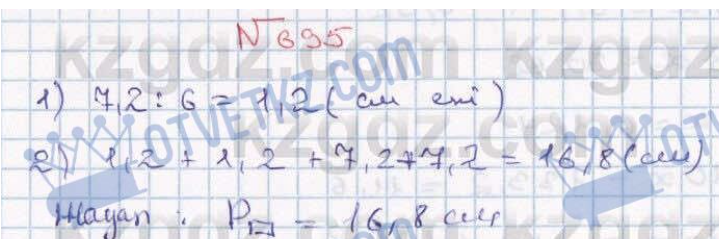 № 695
1) 7,2 : 6 = 1,2 (см ені)
2) 1,2 + 1,2 + 7,2 + 7,2 = 16,8 (см)
Жауап : P▭ = 16,8 см
kzgdz.com
OTVETKZ.com